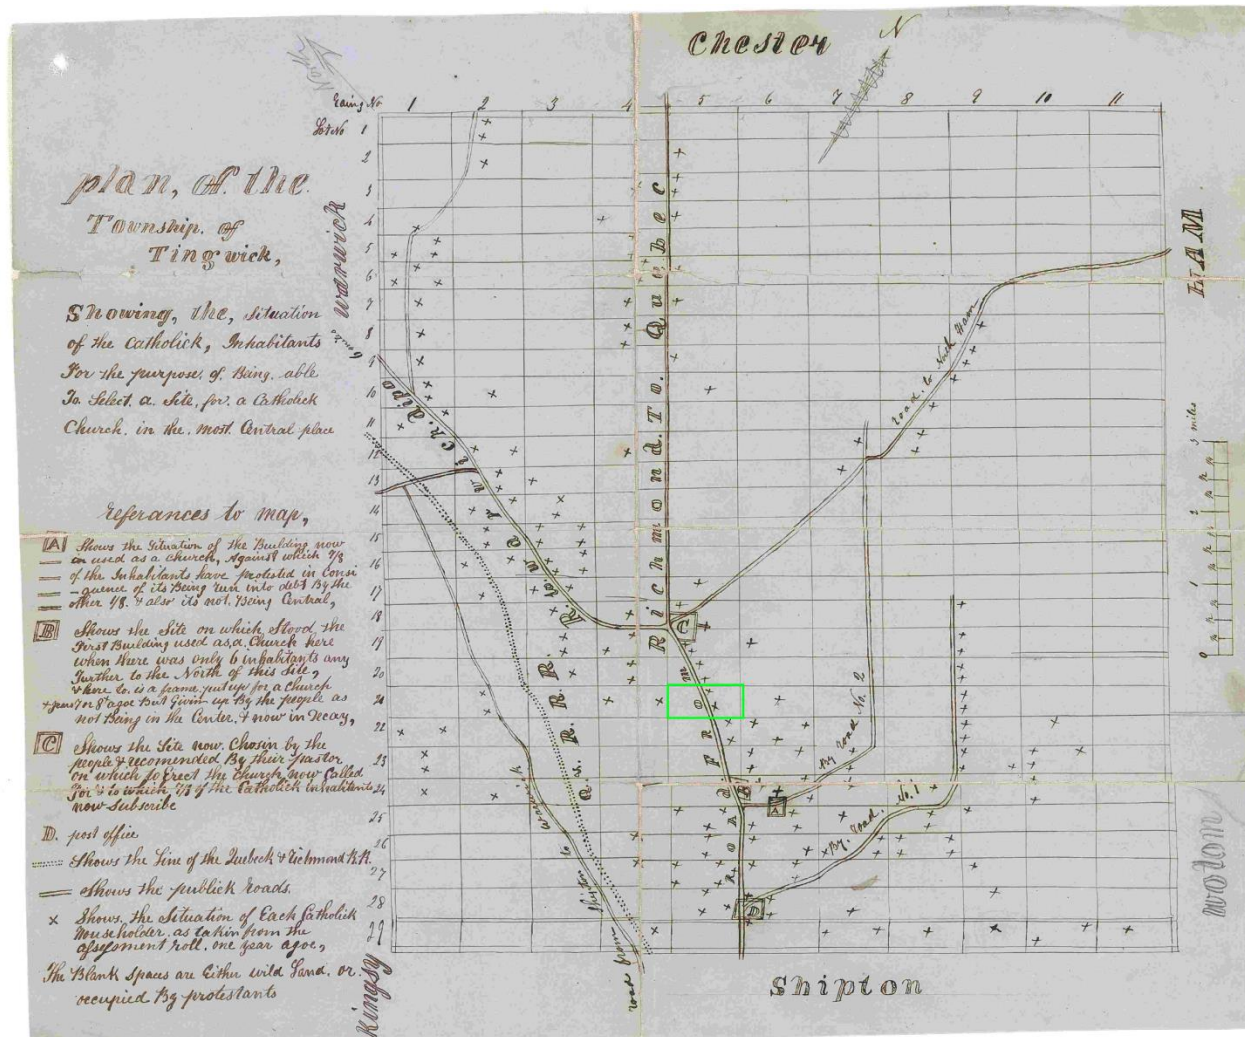 Chester
N
North
Raing No 1 2 3 4 5 6 7 8 9 10 11
Lot No 1
2
3
4
5
6
7
8
9
10
11
12
13
14
15
16
17
18
19
20
21
22
23
24
25
26
27
28
29
plan, of. the.
Township. of
Tingwick,
Showing, the, situation
of the Catholick, Inhabitants
For the purpose, of. Being. able
To Select. a. Site, for. a Catholick
Church. in the. most. Central place
referances to map,
A Shows the Situation of the Building now
in used as a church, Against which 7/8
of the Inhabitants have protested in Consi
-quence of its Being run into debt By the
other 1/8. & also its not. Being Central,
B Shows the Site on which Stood the
First Building used as. a. Church here
when there was only 6 inhabitants any
Further to the North of this Site,
there is a frame put up for a church
7 or 8 agoe But Givin up By the people as
not Being in the Center, & now in Decay,
C Shows the Site now. Chosin by the
people & recomended By their pastor
on which to Erect the church, now Called
For & to which 7/8 of the Catholick inhabitants
now Subscribe
D. post office
Shows the Line of the Quebeck & Richmond R.R.
Shows the publick roads.
x Shows the Situation of Each Catholick
Householder. as takin from the
assessment roll. one year agoe,
The Blank Spaces are Either wild Land. or.
occupied By protestants
warwick
Kingsy
HAM
wotom
Shipton
Road From Richmond. To. Quebec
Q. R. R. R.
road from Shipton to warwick
road. to North Ham
By road No. 2
By. road. No. 1
A
B
C
D
3 miles
2
1
0